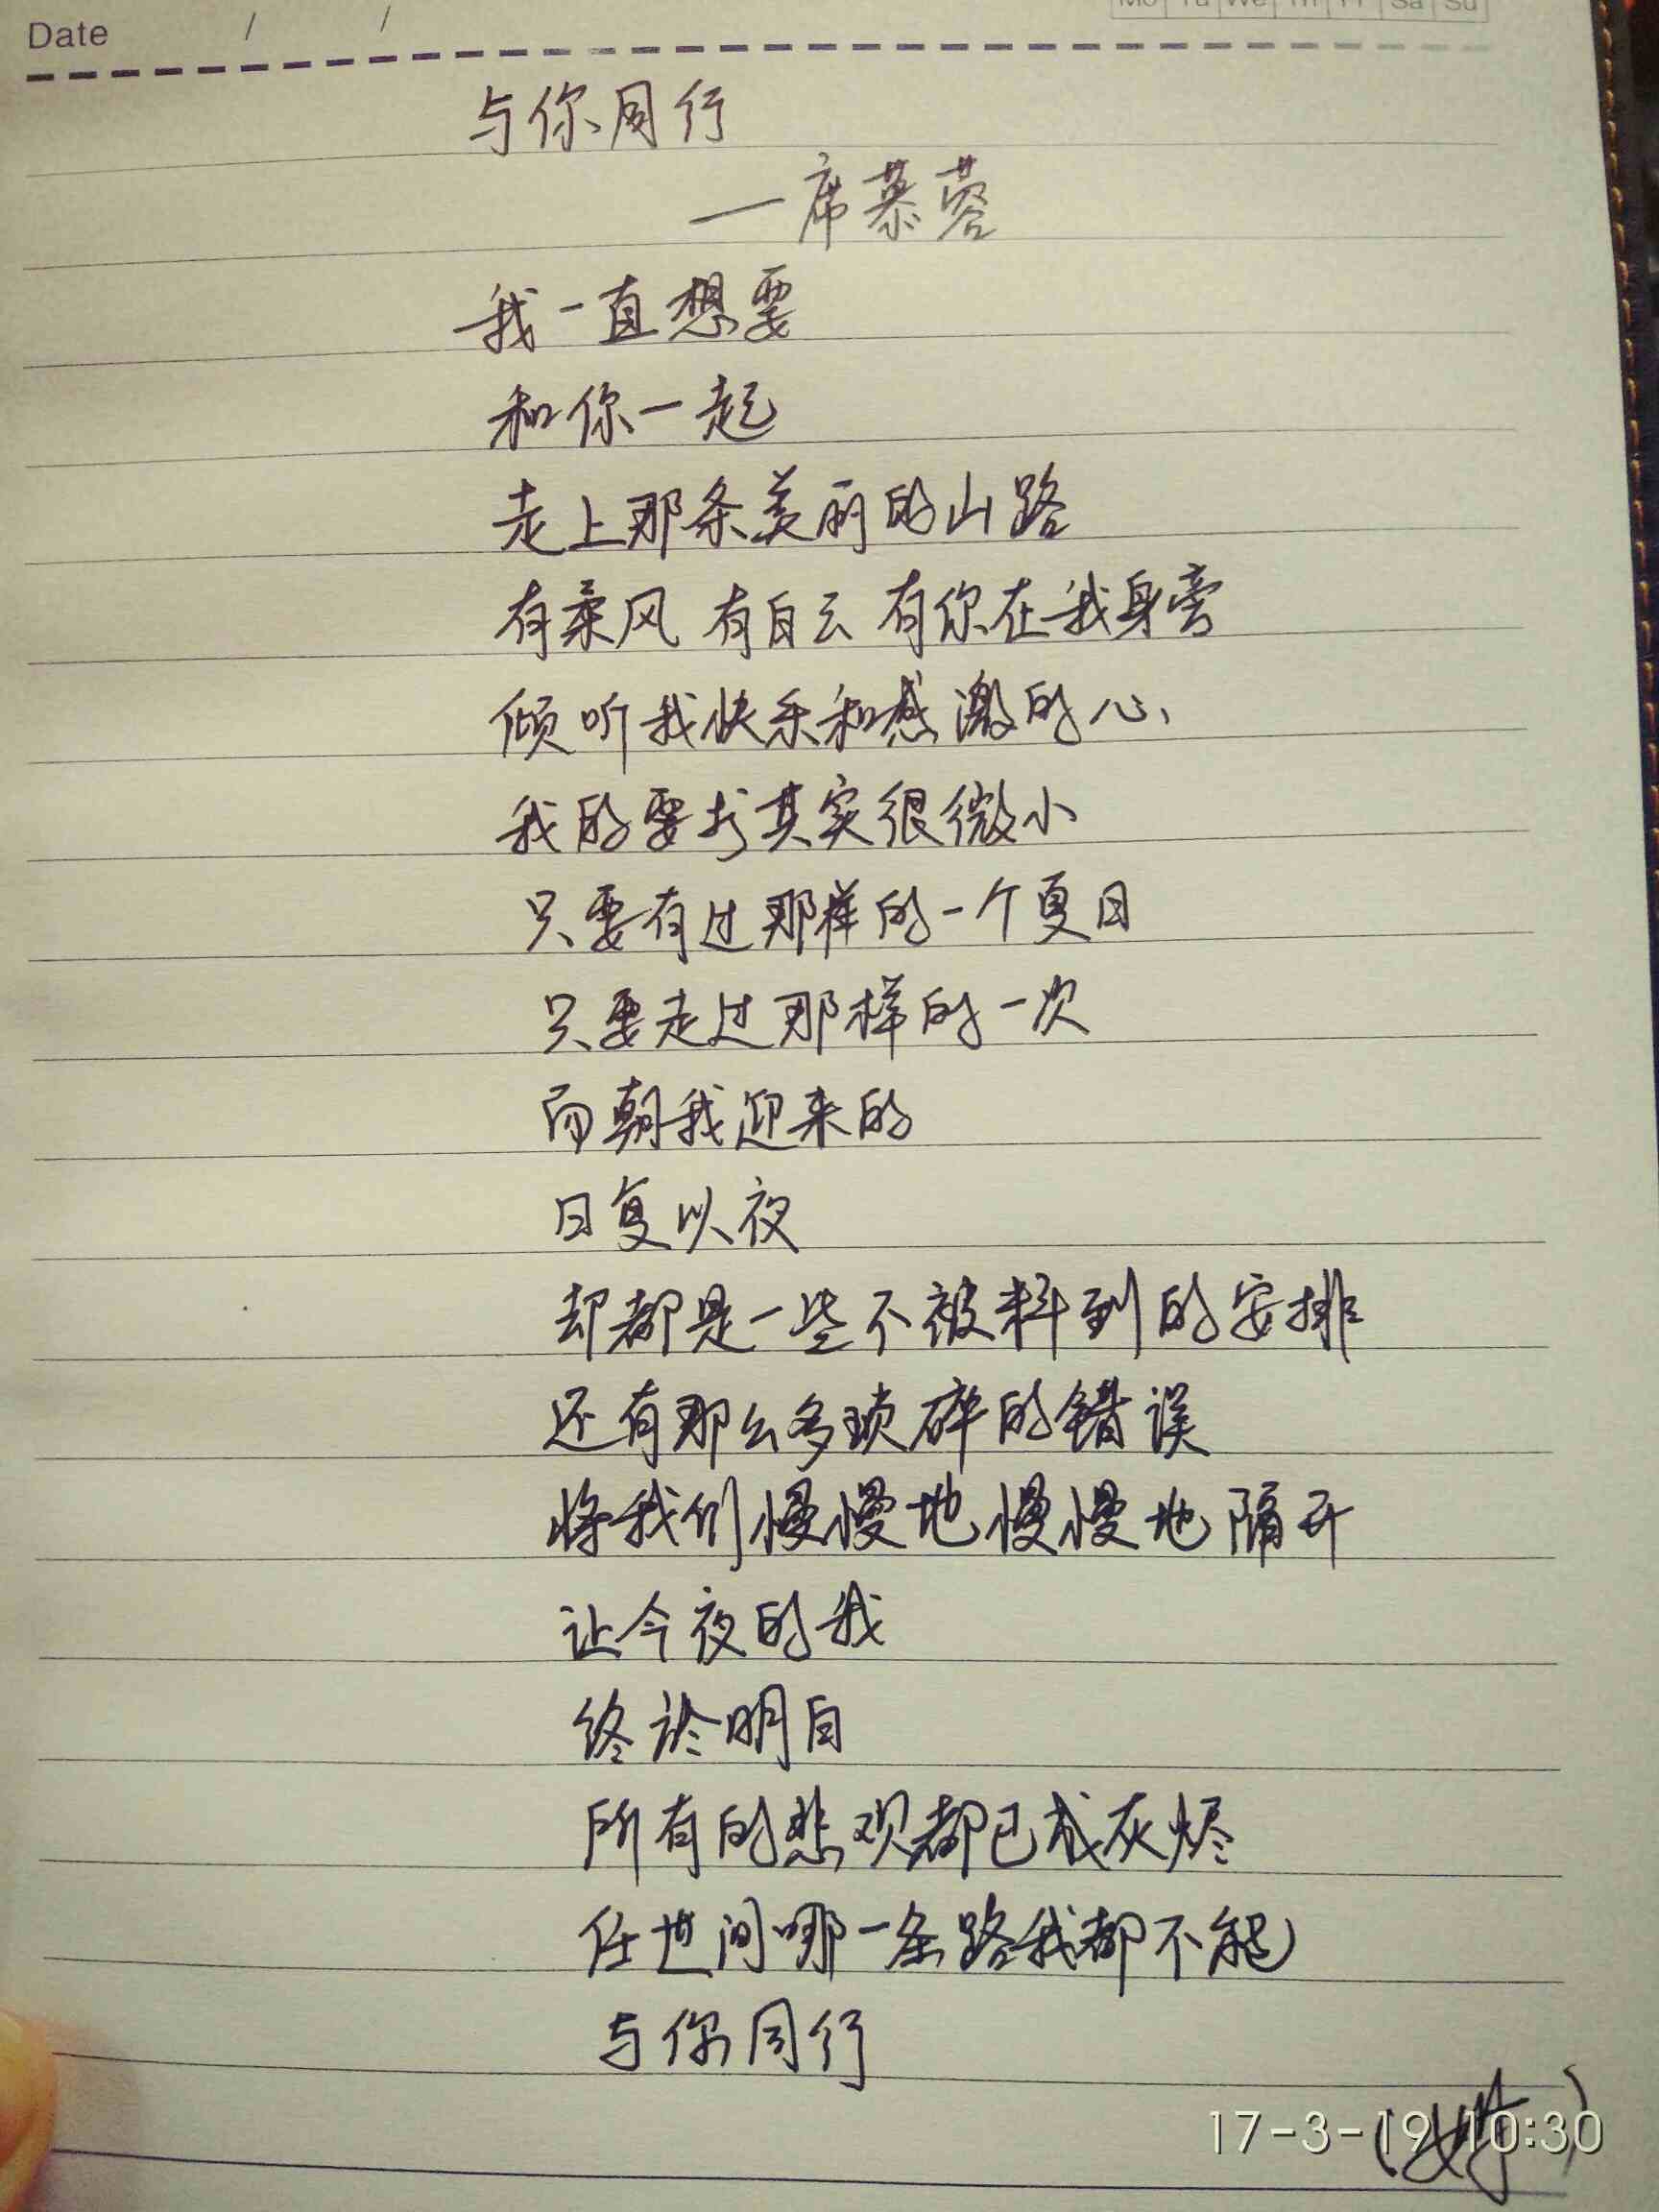 Date / /
Mo Tu We Th Fr Sa Su
与你同行
—席慕蓉
我一直想要
和你一起
走上那条美丽的山路
有柔风 有白云 有你在我身旁
倾听我快乐和感激的心
我的要求其实很微小
只要有过那样的一个夏日
只要走过那样的一次
而朝我迎来的
日复以夜
却都是一些不被料到的安排
还有那么多琐碎的错误
将我们慢慢地慢慢地隔开
让今夜的我
终於明白
所有的悲观都已成灰烬
任世间哪一条路我都不能
与你同行
17-3-19 10:30